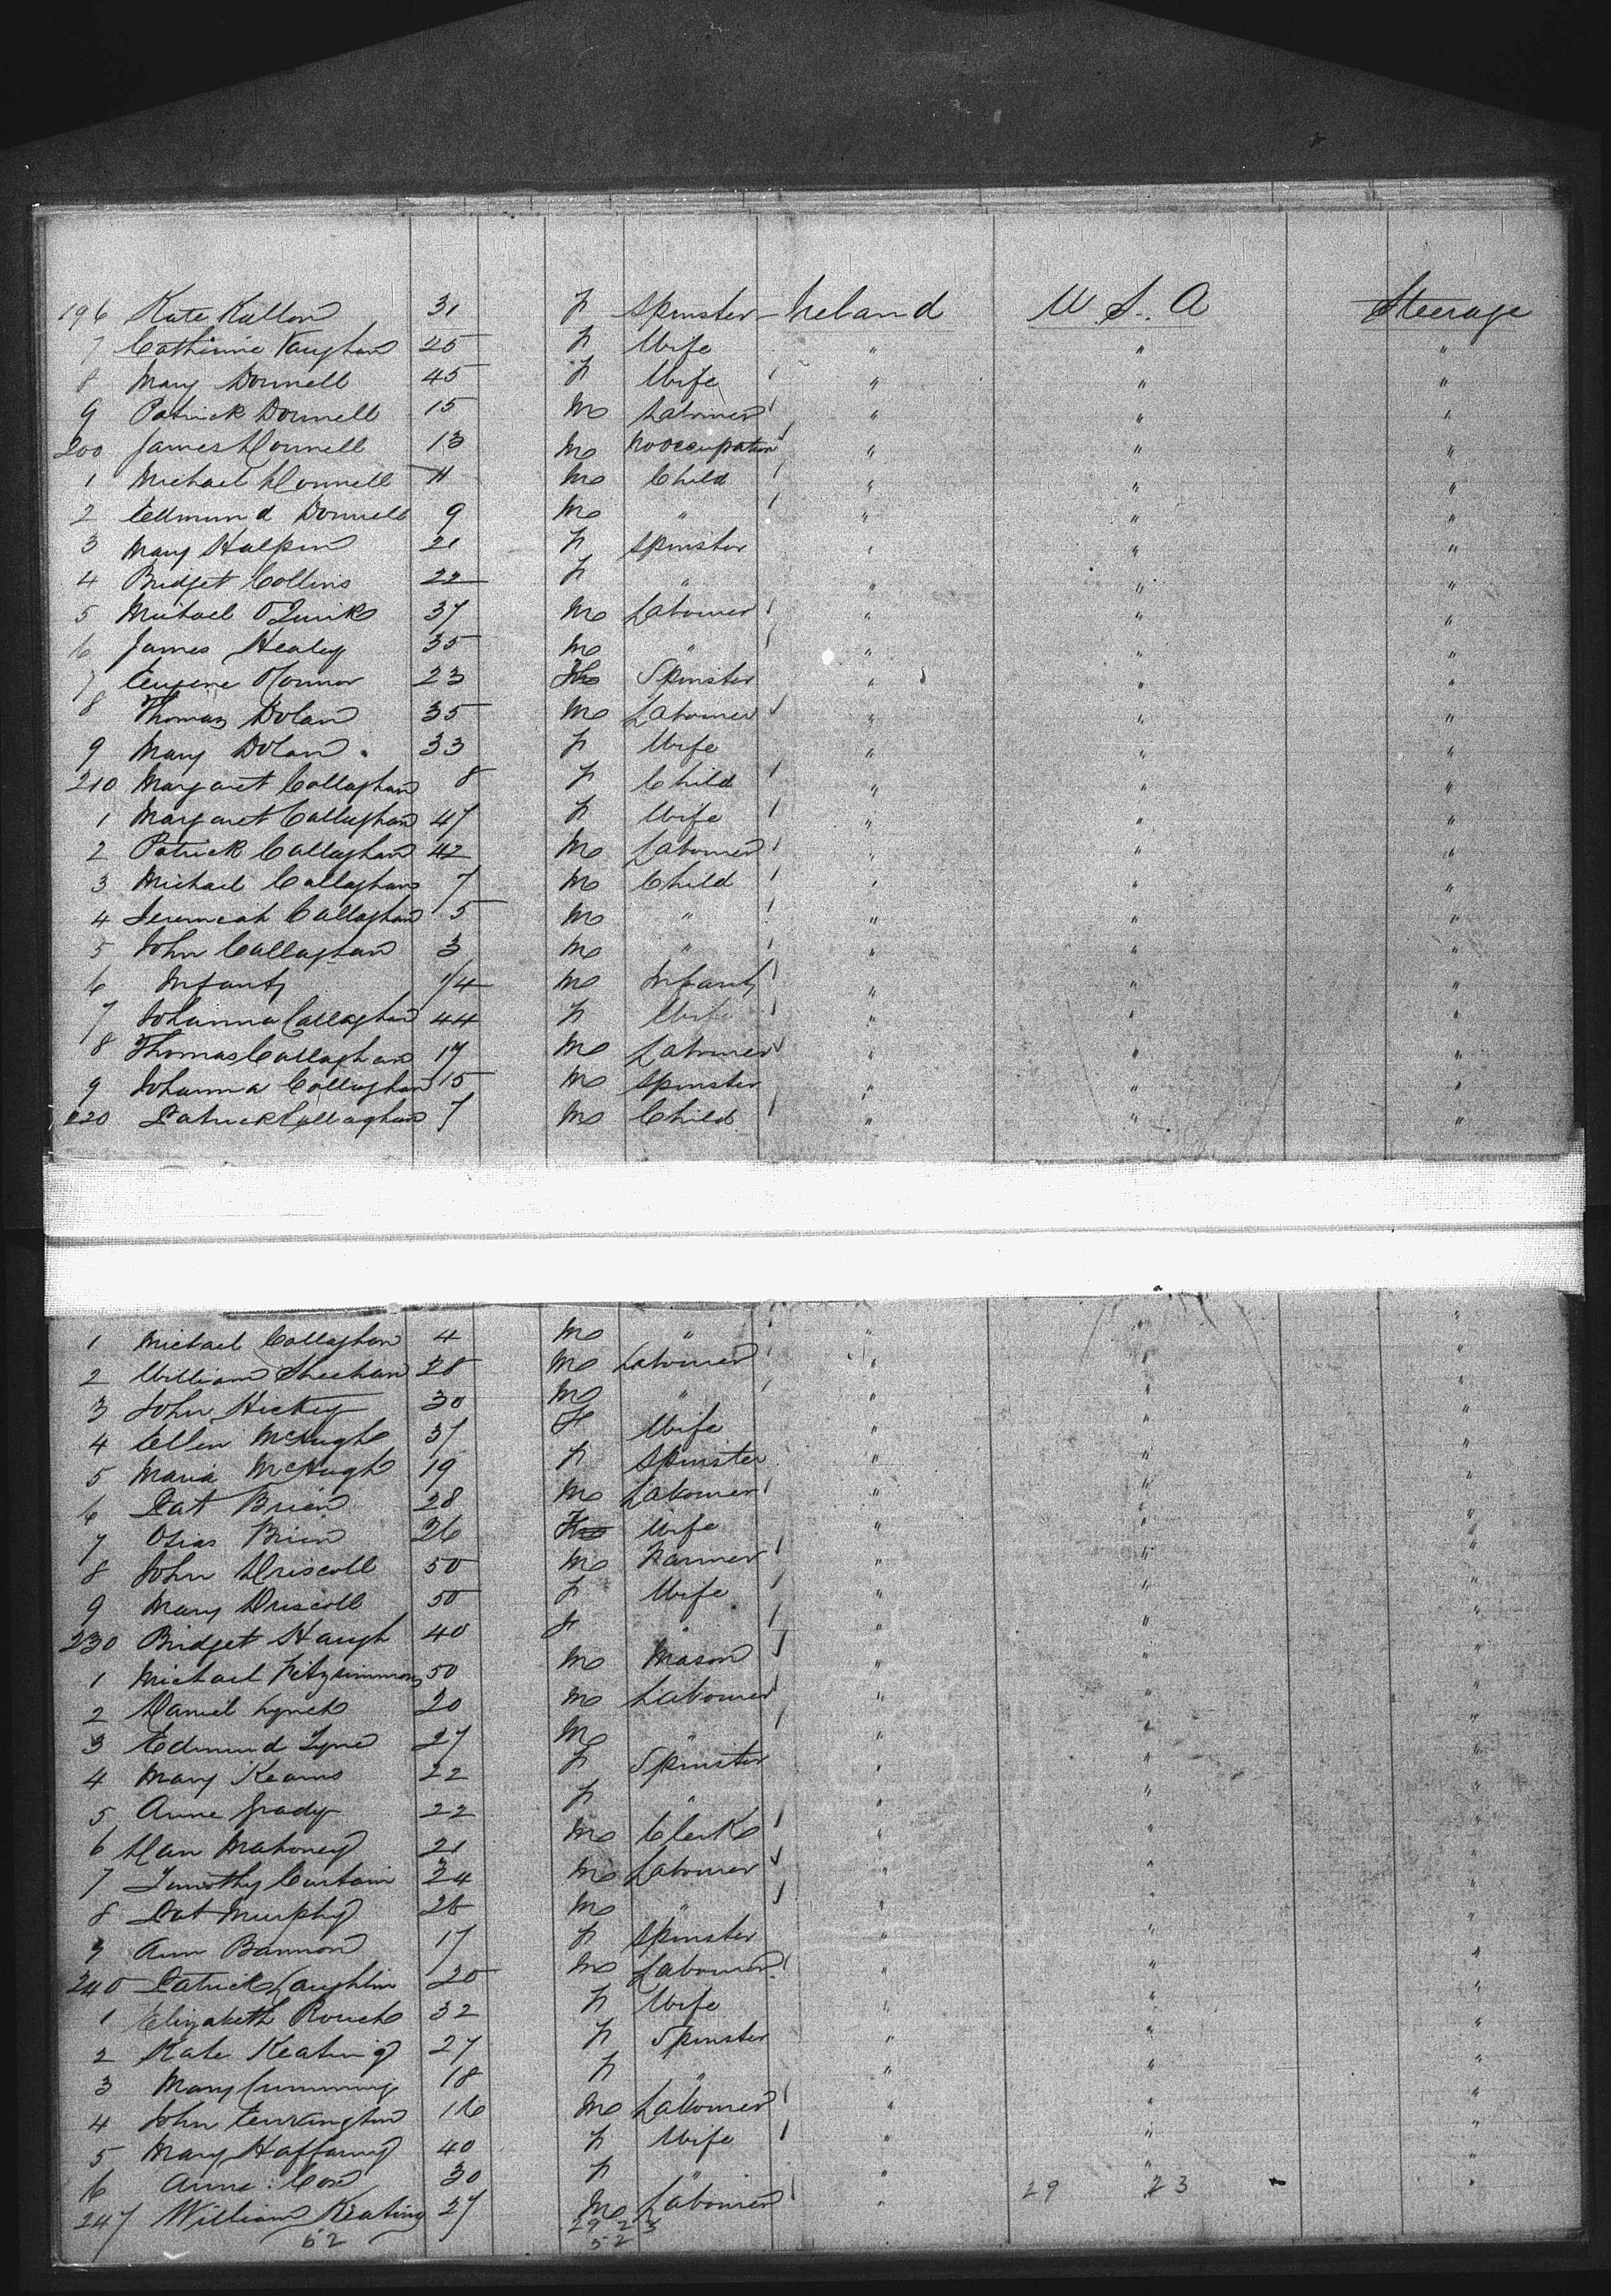 196 Kate Kallon 31 F Spinster Ireland U.S.A Steerage
7 Catherine Vaughan 25 F Wife " " "
8 Mary Donnell 45 F Wife " " "
9 Patrick Donnell 15 M Labourer " " "
200 James Donnell 13 M No occupation " " "
1 Michael Donnell 11 M Child " " "
2 Edmund Donnell 9 M " " " "
3 Mary Halpin 21 F Spinster " " "
4 Bridget Collins 22 F " " " "
5 Michael 37 M Labourer " " "
6 James Healey 35 M " " " "
7 Eugene OConnor 23 Spinster " " "
8 Thomas Dolan 35 M Labourer " " "
9 Mary Dolan 33 F Wife " " "
210 Margaret Callaghan 8 F Child " " "
1 Margaret Callaghan 47 F Wife " " "
2 Patrick Callaghan 42 M Labourer " " "
3 Michael Callaghan 7 M Child " " "
4 Jeremeah Callaghan 5 M " " " "
5 John Callaghan 3 M " " " "
6 Infant 1/4 M Infant " " "
7 Johanna Callaghan 44 F Wife " " "
8 Thomas Callaghan 17 M Labourer " " "
9 Johanna Callaghan 15 M Spinster " " "
220 Patrick Callaghan 7 M Child " " "
1 Michael Callaghan 4 M " " " "
2 William Sheehan 28 M Labourer " " "
3 John Hickey 30 M " " " "
4 Ellen McHugh 37 F Wife " " "
5 Maria McHugh 19 F Spinster " " "
6 Pat Brien 28 M Labourer " " "
7 Brien 26 Wife " " "
8 John Driscoll 50 M Farmer " " "
9 Mary Driscoll 50 F Wife " " "
230 Bridget Haugh 40 F " " " "
1 Michael Fitzsimmons 50 M Mason " " "
2 Daniel Lynch 20 M Labourer " " "
3 Edmund Lyne 27 M " " " "
4 Mary Kearns 22 F Spinster " " "
5 Anne Grady 22 F " " " "
6 Dan Mahoney 21 M Clerk " " "
7 Timothy Curtain 24 M Labourer " " "
8 Pat Murphy 26 M " " " "
9 Ann Bannon 17 F Spinster " " "
240 Patrick Laughlin 20 M Labourer " " "
1 Elizabeth Rouch 32 F Wife " " "
2 Kate Keating 27 F Spinster " " "
3 Mary Cumming 18 F " " " "
4 John 16 M Labourer " " "
5 Mary Haffarny 40 F Wife " " "
6 Anne Cox 30 F " " 29 23 "
247 William Keating 27 M Labourer "
52 29 23
52